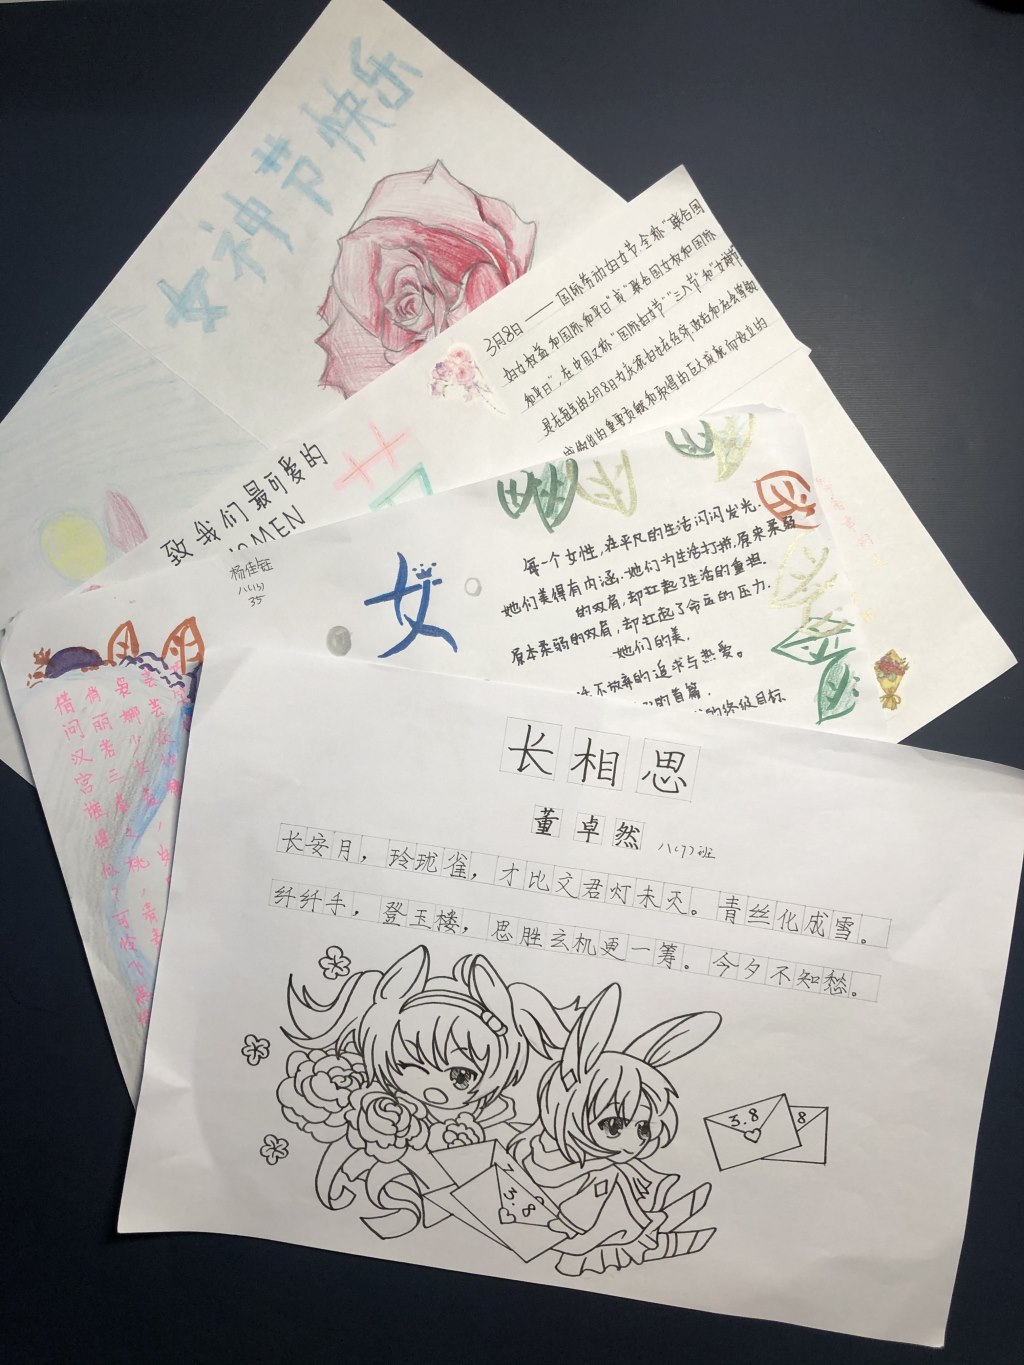 女神节快乐
3月8日——国际劳动妇女节,全称“联合国
妇女权益和国际和平日”或“联合国女权和国际
和平日”,在中国又称“国际妇女节”“三八节”和“女神节
是在每年的3月8日为庆祝妇女在经济、政治和社会等领
域做出的重要贡献和取得的巨大成就而设立的
致我们最可爱的
WOMEN
杨佳钰
八(5)
35
女
每一个女性,在平凡的生活闪闪发光.
她们美得有内涵.她们为生活打拼,原来柔弱
的双肩,却扛起了生活的重担.
原本柔弱的双肩,却扛起了命运的压力.
她们的美.
不放弃的追求与热爱。
的首篇.
的终促目标
借问汉宫谁得似?可怜飞燕
长相思
董卓然 八(7)班
长安月,玲珑雀,才比文君灯未灭。青丝化成雪。
纤纤手,登玉楼,思胜玄机更一筹。今夕不知愁。
3.8
8
3.8